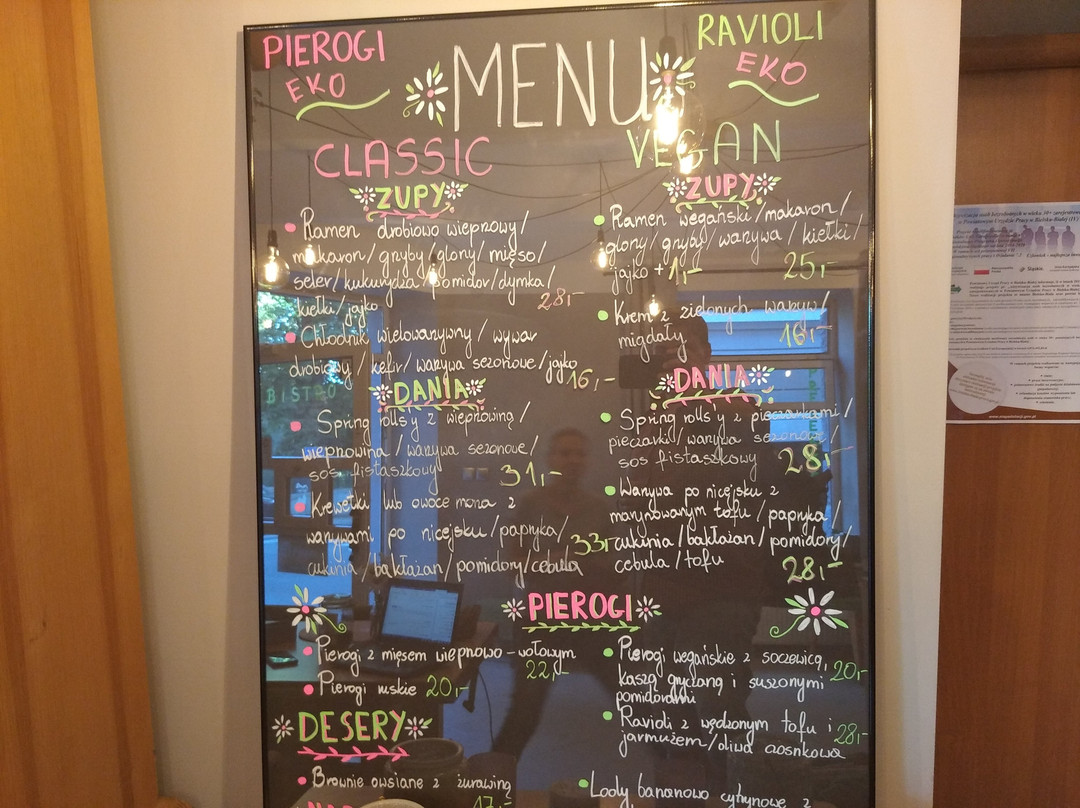 PIEROGI
EKO
MENU
RAVIOLI
EKO
CLASSIC
ZUPY
Ramen drobiowo wieprzowy/
makaron/grzyby/glony/mięso/
seler/kukurydza/pomidor/dymka/
kiełki/jajko 28,-
Chłodnik wielowarzywny/wywar
drobiowy/kefir/warzywa sezonowe/jajko 16,-
DANIA
Spring rolls'y z wieprzowiną/
wieprzowina/warzywa sezonowe/
sos fistaszkowy 31,-
Krewetki lub owoce morza z
warzywami po nicejsku/papryka/
cukinia/bakłażan/pomidory/cebula 33,-
VEGAN
ZUPY
Ramen wegański/makaron/
glony/grzyby/warzywa/kiełki/
jajko +1,- 25,-
Krem z zielonych warzyw/
migdały 16,-
DANIA
Spring rolls'y z pieczarkami/
pieczarki/warzywa sezonowe/
sos fistaszkowy 28,-
Warzywa po nicejsku z
marynowanym tofu/papryka/
cukinia/bakłażan/pomidory/
cebula/tofu 28,-
PIEROGI
Pierogi z mięsem wieprzowo-wołowym
22,-
Pierogi ruskie 20,-
Pierogi wegańskie z soczewicą, 20,-
kaszą gryczaną i suszonymi
pomidorami
Ravioli z wędzonym tofu i
jarmużem/oliwa czosnkowa 28,-
DESERY
Brownie owsiane z żurawiną
17,-
Lody bananowo cytrynowe z
BISTRO
www.mapadotacji.gov.pl